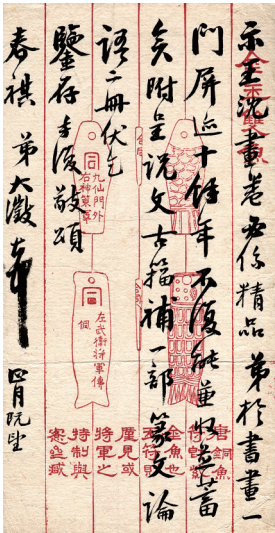 示王洗畫卷必係精品弟於書畫一
門屏近十餘年不復能並收兼蓄
矣附呈説文古籀補一部篆文論
語二冊伏乞
鑒存手復敬頌
春祺 弟大澂頓首 四月既望
同 九仙門外右神策軍
同 左武衛將軍傳佩
唐銅魚
金魚也
將軍之
特制與
愙齋藏